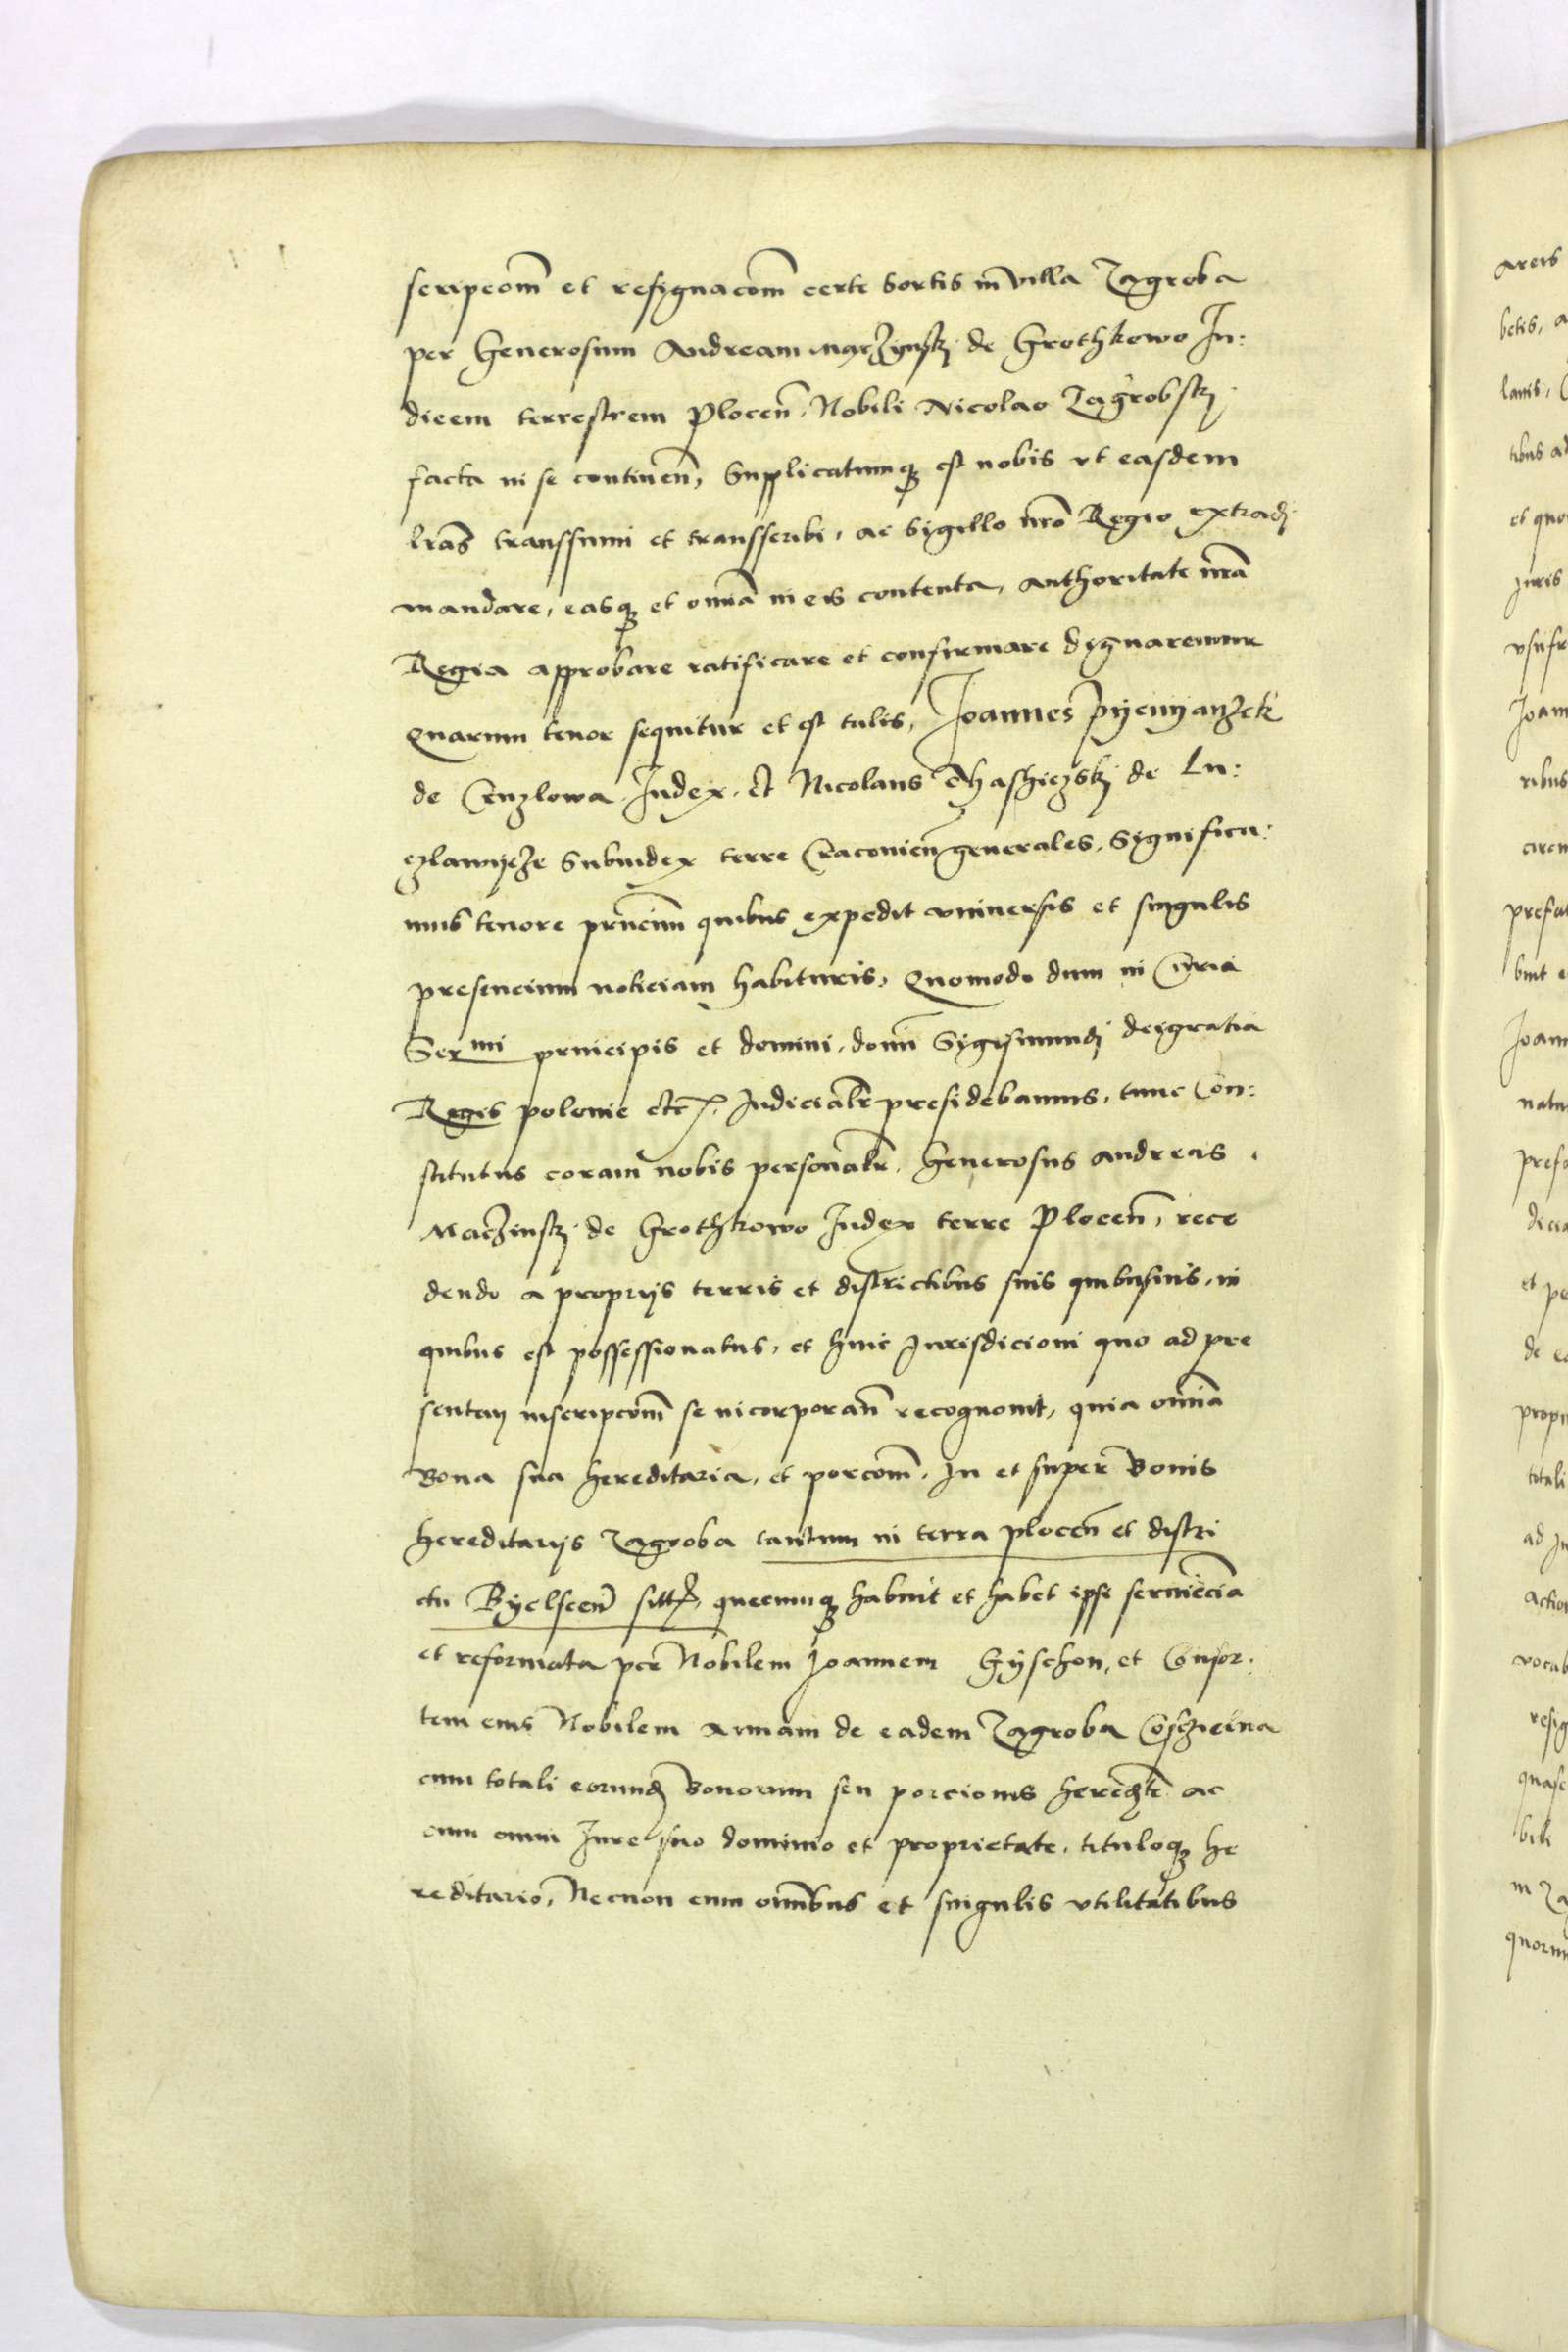 scripcom̄ et resignacom̄ certe sortis in villa Zagroba
per Generosum Andream Maczynskj de Grothkowo Ju:
dicem terrestrem Plocen̄, Nobili Nicolao Zagrobskj
facta in se continen̄, Supplicatumq₃ est nobis vt easdem
l̄ras transsumi et transscribi, ac Sigillo n̄ro Regio extradj
mandare, easq₃ et om̄ia in eis contenta, authoritate n̄ra
Regia approbare ratificare et confirmare dignaremur
Quarum tenor sequitur et est talis, Joannes Pyenyanzek
de Cruzlowa Judex, et Nicolaus Chasziczskj de Lu:
czlawycze Subiudex terre Cracouien̄ generales, Significa:
mus tenore pr̄ncium quibus expedit vniuersis et singulis
presencium noticiam habituris, Quomodo dum in Curia
Ser^mi principis et domini, dom̄i Sygismundj dei gratia
Regis polonie etc̄, Judicialr̄ presidebamus, tunc Con:
stitutus coram nobis personalr̄, Generosus Andreas
Maczinskj de Grothkowo Judex terre Plocen̄, rece
dendo a proprijs terris et districtibus suis quibusuis, in
quibus est possessionatus, et huic Jurisdicioni quo ad pre
sentem inscripcom̄ se incorporan̄ recognouit, quia om̄ia
Bona sua hereditaria, et porcom̄, in et super Bonis
hereditarijs Zagroba tantum in terra plocen̄ et distri
ctu Byelscen̄ sitt̄, quecumq₃ habuit et habet ipse
et reformata per Nobilem Joannem Gyschon, et Consor:
tem eius Nobilem Annam de eadem Zagroba Cosczielna
cum totali eorund̄ Bonorum seu porcionis ac
cum omni Jure suo dominio et proprietate, tituloq₃ he
reditario, Necnon cum om̄ibus et singulis vtilitatibus